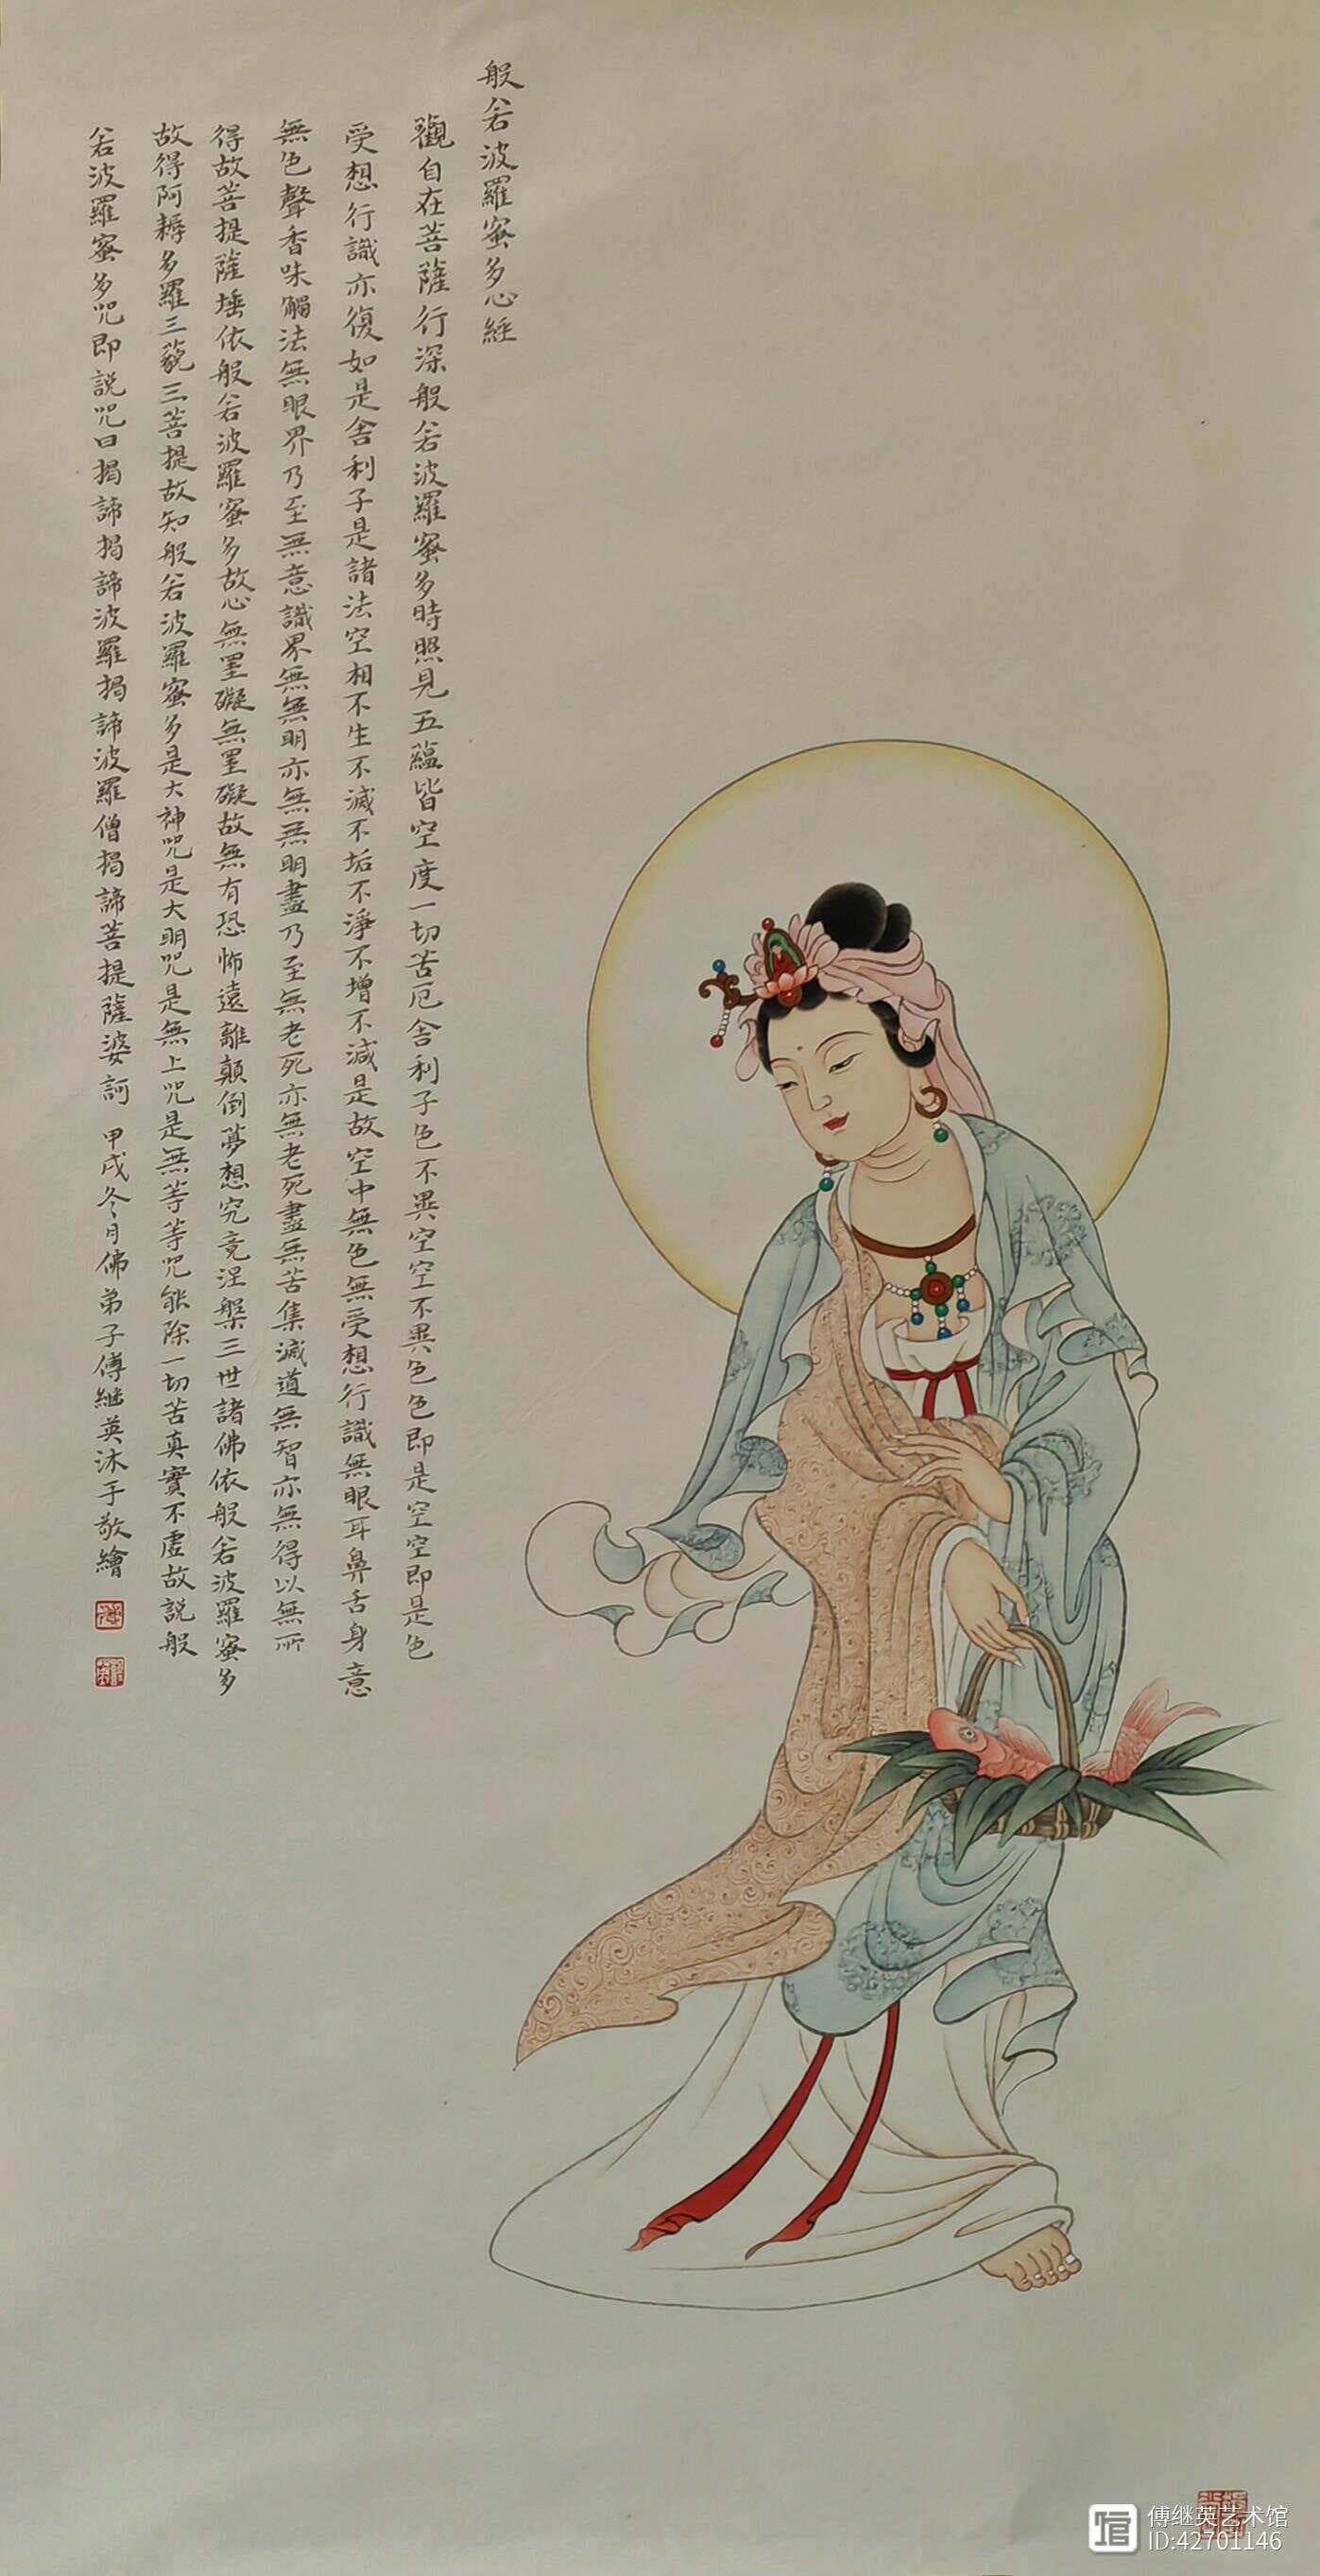 般若波羅蜜多心經
觀自在菩薩行深般若波羅蜜多時照見五蘊皆空度一切苦厄舍利子色不異空空不異色色即是空空即是色
受想行識亦復如是舍利子是諸法空相不生不滅不垢不淨不增不減是故空中無色無受想行識無眼耳鼻舌身意
無色聲香味觸法無眼界乃至無意識界無無明亦無無明盡乃至無老死亦無老死盡無苦集滅道無智亦無得以無所
得故菩提薩埵依般若波羅蜜多故心無罣礙無罣礙故無有恐怖遠離顛倒夢想究竟涅槃三世諸佛依般若波羅蜜多
故得阿耨多羅三藐三菩提故知般若波羅蜜多是大神咒是大明咒是無上咒是無等等咒能除一切苦真實不虛故說般
若波羅蜜多咒即說咒曰揭諦揭諦波羅揭諦波羅僧揭諦菩提薩婆訶 甲戌冬月佛弟子傅継英沐手敬繪
傅继英艺术馆
ID:42701146